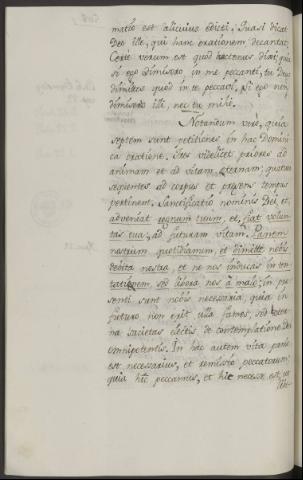 matio est alicuius edicti. Quasi dicat
Deo ille, qui hanc orationem decantat:
Certe verum est quod hactenus dixi, quia
si ego dimisero in me peccanti, tu Deus
dimittes quod in te peccavi, si ego non
dimisero illi, nec tu mihi.
Notandum vero, quia
septem sunt petitiones in hac Domini
ca oratione. Tres videlicet priores ad
animam et ad vitam eternam; quatuor
sequentes ad corpus et presens tempus
pertinent. Sanctificatio nominis Dei, et,
adveniat regnum tuum, et, fiat volun
tas tua, ad futuram vitam. Panem
nostrum quotidianum, et dimitte nobis
debita nostra, et ne nos inducas in ten
tationem, sed libera nos à malo, in pre
senti sunt nobis necessaria, quia in
futuro non erit ulla fames, sed eter
na societas electis de contemplatione Dei
omnipotentis. In hac autem vita panis
est necessarius, et remissio peccatorum,
quia hic peccamus, et hic necesse est, ut